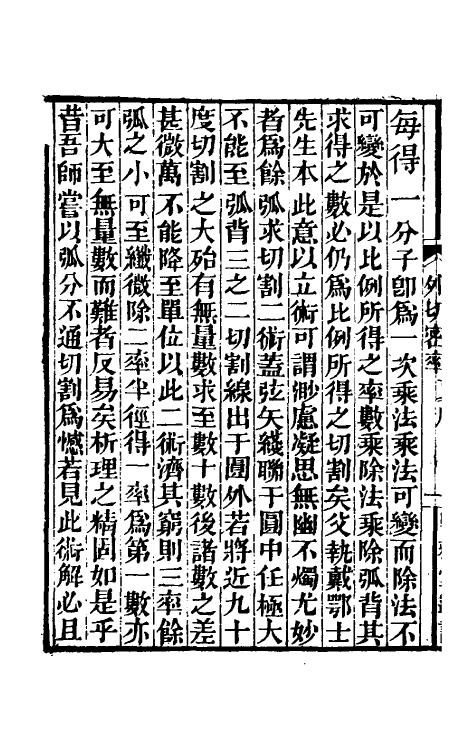 每得一分子卽爲一次乘法乘法可變而除法不
可變於是以比例所得之率數乘除法乘除弧背其
求得之數必仍爲比例所得之切割矣父執戴鄂士
先生本此意以立術可謂渺慮凝思無幽不燭尤妙
者爲餘弧求切割二術蓋弦矢綫聯于圓中任極大
不能至弧背三之二切割線出于圜外若將近九十
度切割之大殆有無量數求至數十數後諸數之差
甚微萬不能降至單位以此二術濟其窮則三率餘
弧之小可至纖微除二率半徑得一率爲第一數亦
可大至無量數而難者反易矣析理之精固如是乎
昔吾師嘗以弧分不通切割爲憾若見此術解必且
外切密率